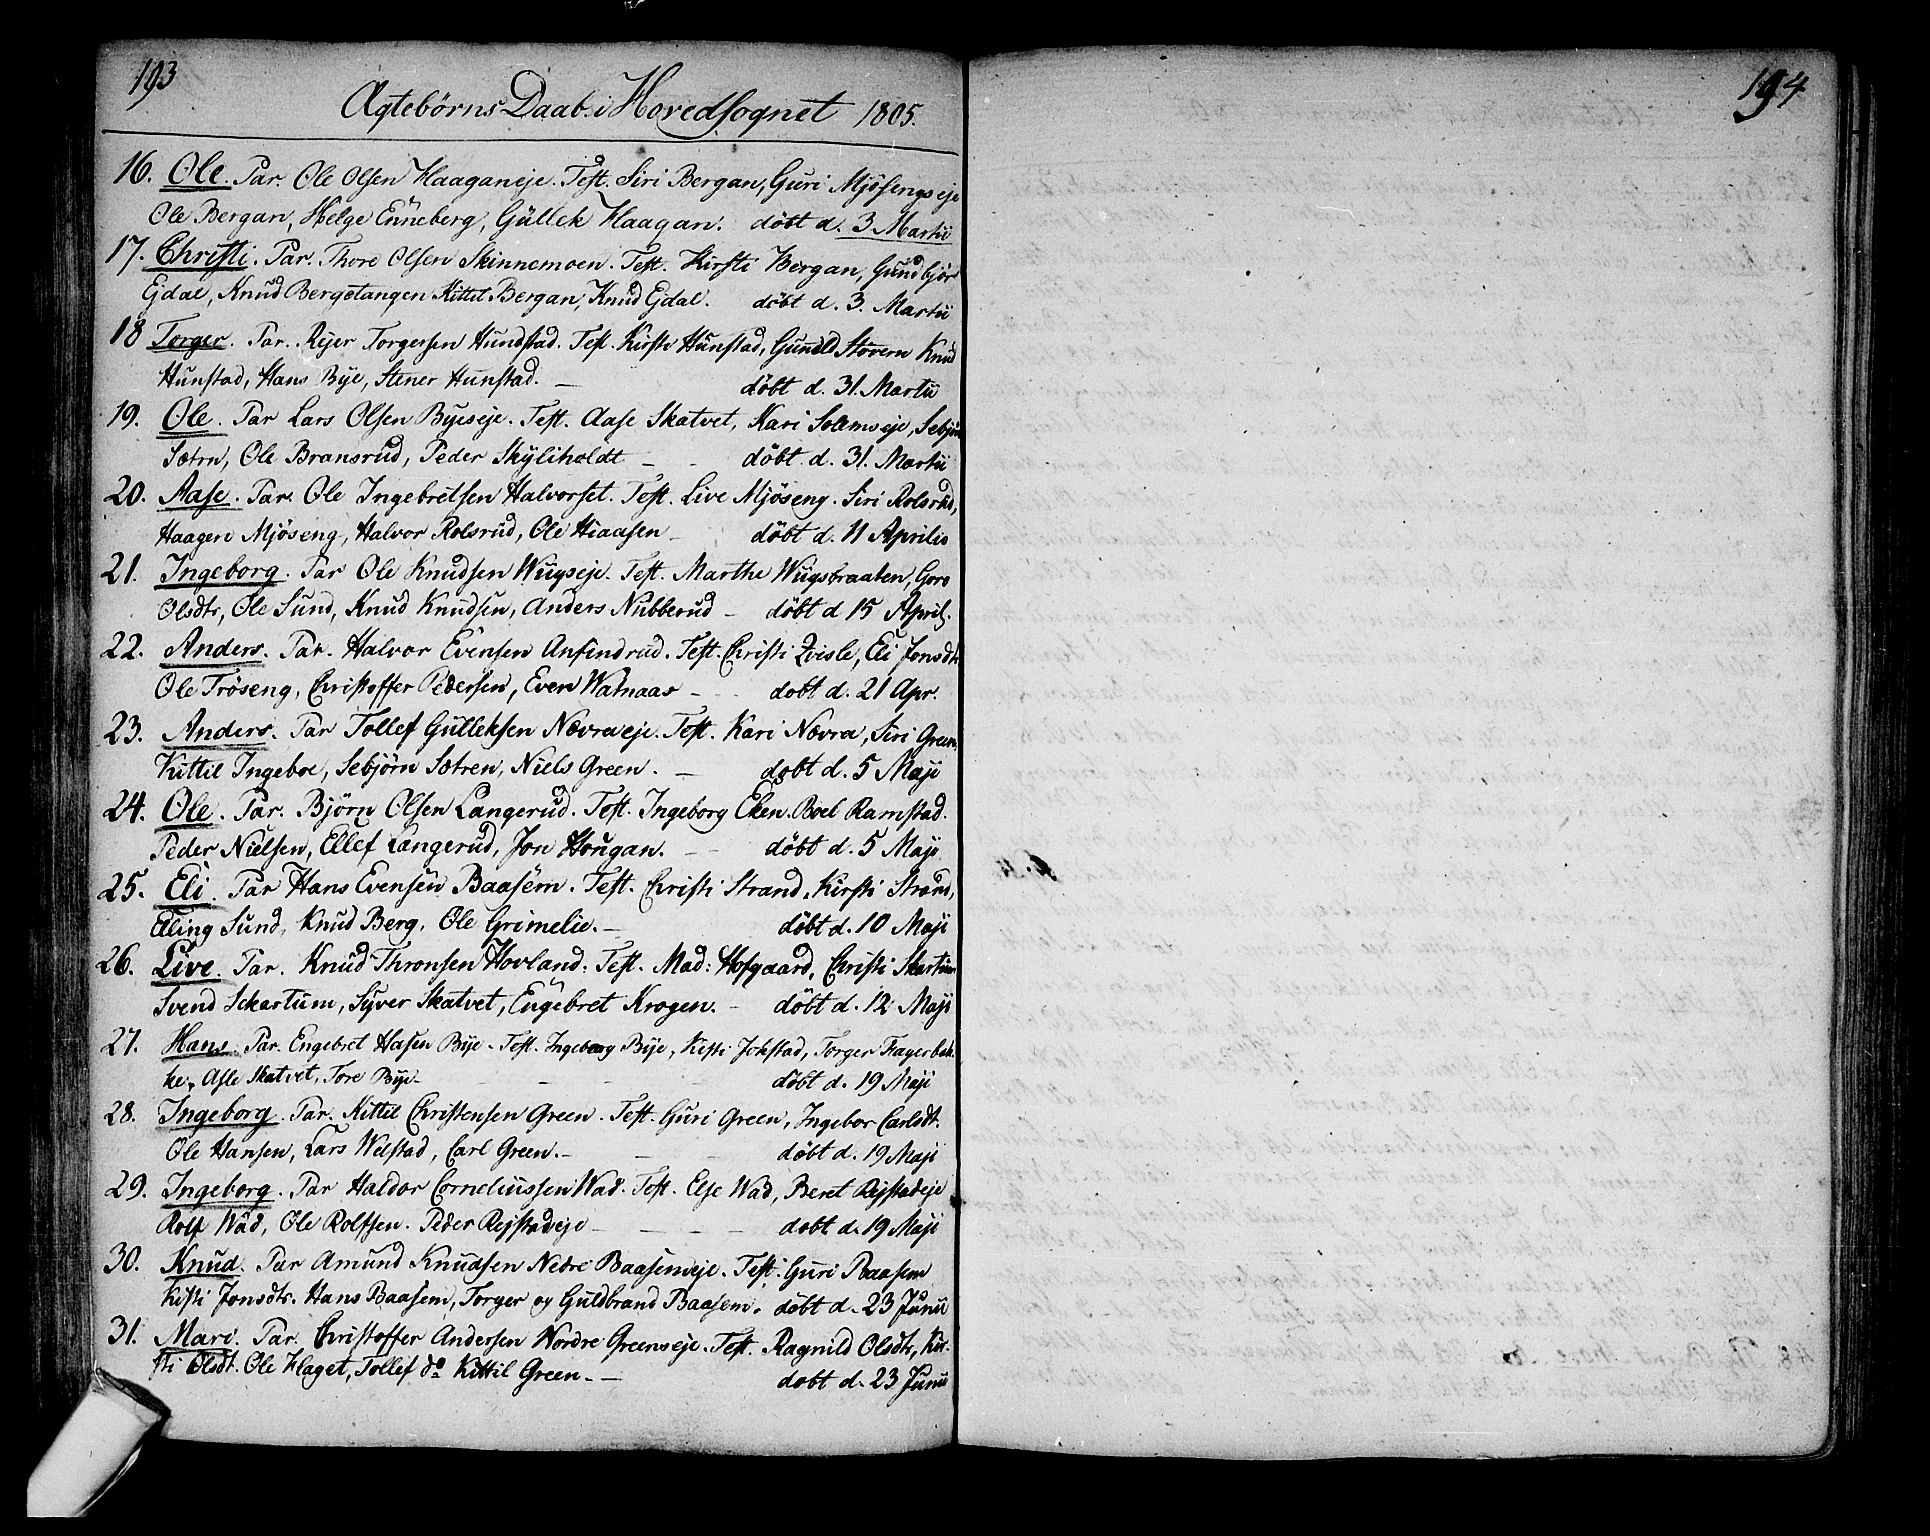 193
Ægtebörns Daab i Hovedsognet 1805.
16. Ole. Par. Ole Olsen Haaganeje. Test. Siri Bergan, Guri Mjösengseje
Ole Bergan, Helge Enneberg, Gullek Haagan. döbt d. 3 Martii
17. Christi. Par. Thore Olsen Skinnemoen. Test. Kirsti Bergan, Gundbjör
Ejdal, Knud Bergstangen Kittil Bergan, Knud Ejdal. döbt d. 3. Martii
18 Torger. Par. Rejer Torgersen Hundstad. Test. Kirsti Hunstad, Gunild Stovern Knud
Hunstad, Hans Bye, Stener Hunstad. — döbt d. 31. Martii
19. Ole. Par Lars Olsen Byeseje. Test. Aase Skatvet, Kari Solemseje, Sebjörn
Sætrn, Ole Bransrud, Peder Skyliholdt — döbt d. 31. Martii
20. Aase. Par. Ole Ingebretsen Halvorset. Test. Live Mjöseng. Siri Rolsrud,
Haagen Mjöseng, Halvor Rolsrud, Ole Hiaasen — döbt d. 11 Aprilis
21. Ingeborg. Par Ole Knudsen Wugseje. Test. Marthe Wugsbraaten, Goro
Olsdtr, Ole Sund, Knud Knudsen, Anders Nubberud — döbt d 15 April.
22. Anders. Par. Halvor Evensen Anfindrud. Test. Christi Qvisle, Eli Jonsdtr
Ole Tröseng, Christoffer Pedersen, Even Watnaas — dobt d. 21 Apr.
23. Anders. Par Tollef Gulleksen Nævraeje. Test. Kari Nævra, Siri Green,
Kittil Ingeboe, Sebjörn Sætren, Niels Green. — dobt d. 5 Maji
24. Ole. Par. Björn Olsen Langerud. Test. Ingeborg Eken. Boel Ramstad.
Peder Nielsen, Ellef Langerud, Jon Hougan. — döbt d. 5 Maji
25. Eli. Par Hans Evensen Baasem. Test. Christi Strand, Kirsti Strand,
Elling Sund, Knud Berg, Ole Grimelie. — döbt d. 10 Maji
26. Live. Par. Knud Thronsen Hovland. Test. Mad: Hofgaard, Christi Skartum
Svend Sckartum, Syver Skatvet, Engebret Krogen. — döbt d. 12 Maji
27. Hans. Par. Engebret Hasen Bye. Test. Ingeborg Bye, Kisti Jokstad, Torger Fagerbak
ke, Asle Skatvet, Tore Bye — döbt d. 19 Maji
28. Ingeborg. Par. Kittil Christensen Green. Test. Guri Green, Ingebor Carlsdt.
Ole Hansen, Lars Welstad, Carl Green. — döbt d. 19 Maji
29. Ingeborg. Par Haldor Corneliussen Wad. Test. Else Wad, Beret Rejstadeje
Rolf Wad, Ole Rolfsen. Peder Rejstadeje — dobt d. 19 Maji
30. Knud. Par Amund Knudsen Nedre Baasemeje. Test. Guri Baasem
Kisti Jonsdtr. Hans Baasem, Torger og Guldbrand Baasem. döbt d. 23 Junii
31. Mari. Par. Christoffer Andersen Nordre Greenseje. Test. Ragnild Olsdtr, Kir-
sti Olsdt. Ole Haget, Tollef do Kittil Green. — dobt d. 23 Junii
194